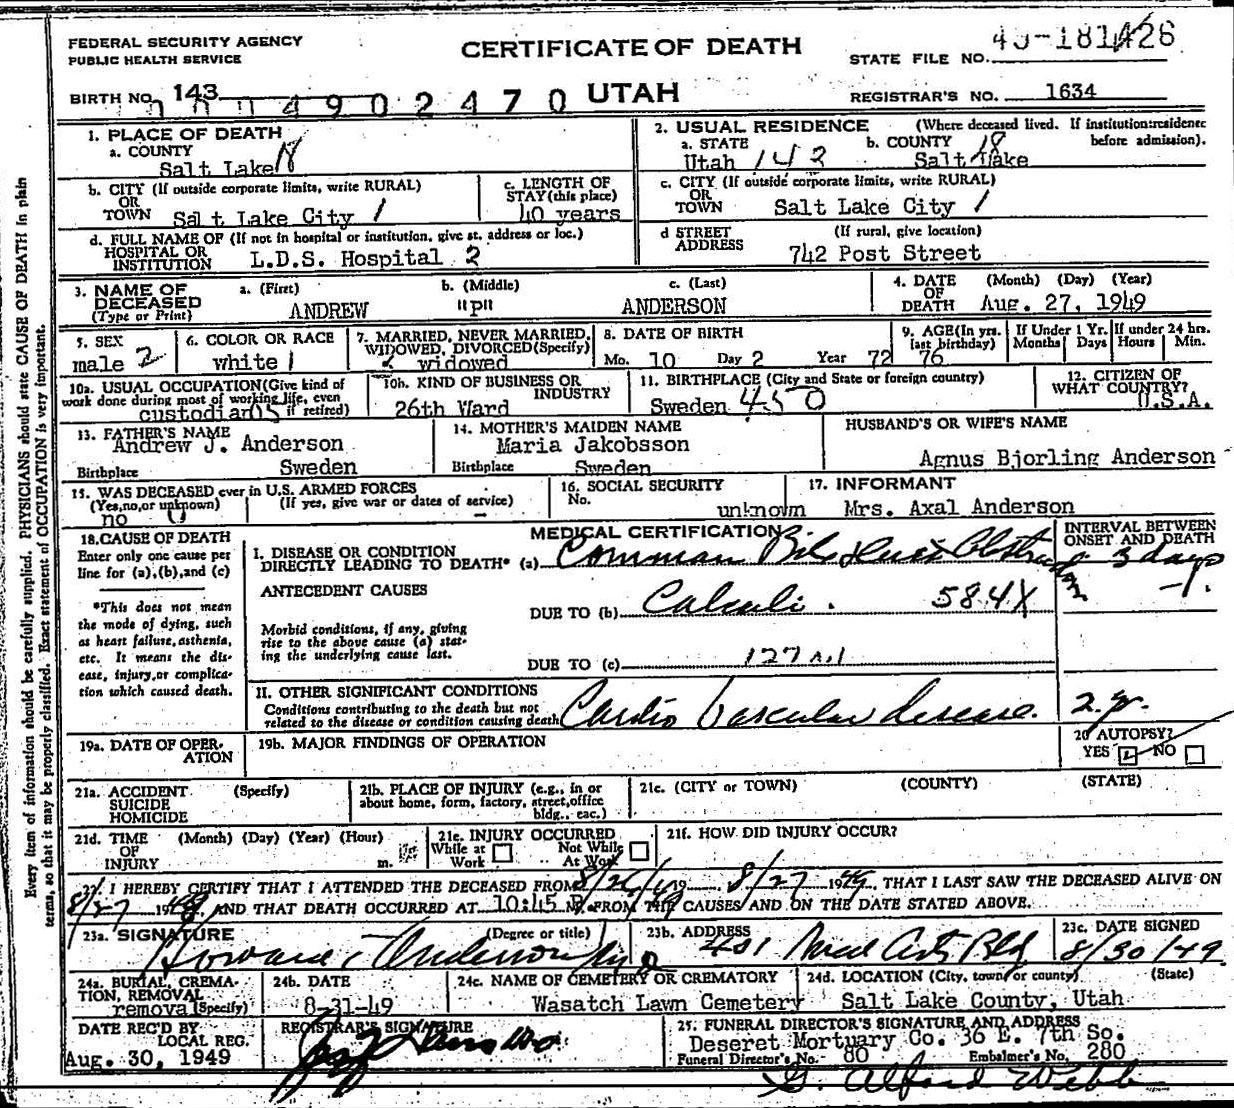 FEDERAL SECURITY AGENCY
PUBLIC HEALTH SERVICE
CERTIFICATE OF DEATH
STATE FILE NO.
BIRTH NO. 143
4902470 UTAH
REGISTRAR'S NO. 1634
1. PLACE OF DEATH
a. COUNTY
Salt Lake 18
2. USUAL RESIDENCE (Where deceased lived. If institution:residence before admission).
a. STATE b. COUNTY 18
Utah 143 Salt Lake
b. CITY (If outside corporate limits, write RURAL)
OR
TOWN Salt Lake City 1
c. LENGTH OF
STAY(this place)
40 years
c. CITY (If outside corporate limits, write RURAL)
OR
TOWN Salt Lake City 1
d. FULL NAME OF (If not in hospital or institution, give st. address or loc.)
HOSPITAL OR
INSTITUTION L.D.S. Hospital 2
d STREET (If rural, give location)
ADDRESS
742 Post Street
3. NAME OF a. (First) b. (Middle) c. (Last)
DECEASED
(Type or Print) ANDREW "P" ANDERSON
4. DATE (Month) (Day) (Year)
OF
DEATH Aug. 27, 1949
5. SEX
male 2
6. COLOR OR RACE
white 1
7. MARRIED, NEVER MARRIED,
WIDOWED, DIVORCED(Specify)
widowed
8. DATE OF BIRTH
Mo. 10 Day 2 Year 72
9. AGE(In yrs.
last birthday)
76
If Under 1 Yr.
Months Days
If under 24 hrs.
Hours Min.
10a. USUAL OCCUPATION(Give kind of
work done during most of working life, even
if retired)
custodian
10b. KIND OF BUSINESS OR
INDUSTRY
26th Ward
11. BIRTHPLACE (City and State or foreign country)
Sweden 450
12. CITIZEN OF
WHAT COUNTRY?
U.S.A.
13. FATHER'S NAME
Andrew J. Anderson
Birthplace Sweden
14. MOTHER'S MAIDEN NAME
Maria Jakobsson
Birthplace Sweden
HUSBAND'S OR WIFE'S NAME
Agnus Bjorling Anderson
15. WAS DECEASED ever in U.S. ARMED FORCES
(Yes,no,or unknown) (If yes, give war or dates of service)
no 0 -
16. SOCIAL SECURITY
No.
unknown
17. INFORMANT
Mrs. Axal Anderson
18. CAUSE OF DEATH
Enter only one cause per
line for (a),(b),and (c)
*This does not mean
the mode of dying, such
as heart failure,asthenia,
etc. It means the dis-
ease, injury,or complica-
tion which caused death.
MEDICAL CERTIFICATION
I. DISEASE OR CONDITION
DIRECTLY LEADING TO DEATH* (a) Common Bile Duct Obstruction
INTERVAL BETWEEN
ONSET AND DEATH
3 days
ANTECEDENT CAUSES
DUE TO (b) Calculi. 584X
Morbid conditions, if any, giving
rise to the above cause (a) stat-
ing the underlying cause last.
DUE TO (c)
II. OTHER SIGNIFICANT CONDITIONS
Conditions contributing to the death but not
related to the disease or condition causing death
Cardio Vascular disease. 2 yr.
19a. DATE OF OPER-
ATION
19b. MAJOR FINDINGS OF OPERATION
20 AUTOPSY?
YES NO
21a. ACCIDENT (Specify)
SUICIDE
HOMICIDE
21b. PLACE OF INJURY (e.g., in or
about home, form, factory, street,office
bldg., eac.)
21c. (CITY or TOWN) (COUNTY) (STATE)
21d. TIME (Month) (Day) (Year) (Hour)
OF
INJURY m.
21e. INJURY OCCURRED
While at Work Not While At Work
21f. HOW DID INJURY OCCUR?
22. I HEREBY CERTIFY THAT I ATTENDED THE DECEASED FROM 8/26/49 19 8/27 1949, THAT I LAST SAW THE DECEASED ALIVE ON
8/27 1949, AND THAT DEATH OCCURRED AT 10:45 P M. FROM THE CAUSES AND ON THE DATE STATED ABOVE.
23a. SIGNATURE (Degree or title)
Howard Anderson
23b. ADDRESS
401 Med Arts Bld
23c. DATE SIGNED
8/30/49
24a. BURIAL, CREMA-
TION, REMOVAL
removal(Specify)
24b. DATE
8-31-49
24c. NAME OF CEMETERY OR CREMATORY
Wasatch Lawn Cemetery
24d. LOCATION (City, town, or county) (State)
Salt Lake County, Utah
DATE REC'D BY
LOCAL REG.
Aug. 30, 1949
REGISTRAR'S SIGNATURE
25. FUNERAL DIRECTOR'S SIGNATURE AND ADDRESS
Deseret Mortuary Co. 36 E. 7th So.
Funeral Director's No. 80 Embalmer's No. 280
G. Alford Webb
Every item of information should be carefully supplied. PHYSICIANS should state CAUSE OF DEATH in plain
terms, so that it may be properly classified. Exact statement of OCCUPATION is very important.